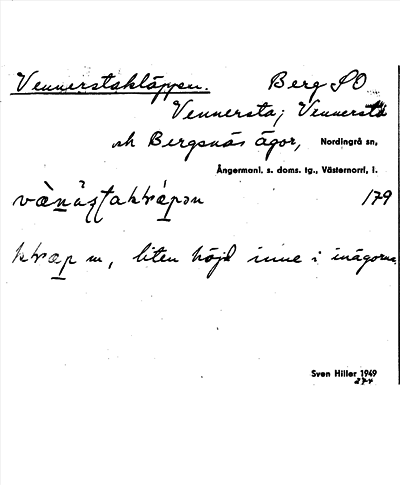 Vennerstakläppen. Berg SO
Vennersta; Vennersta
och Bergsnäs ägor, Nordingrå sn,
Ångermanl. s. doms. tg., Västernorrl. l.
179
m, liten höjd inne i inägorna
Sven Hiller 1949